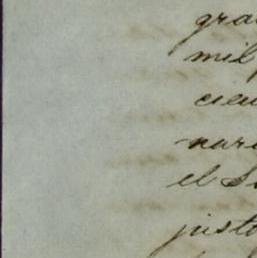 gra
mil
cien
nari
el S
justo